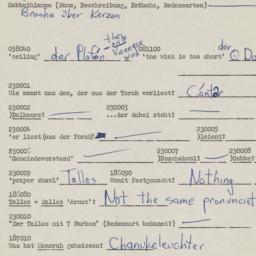 Sabbathlampe (Name, Beschreibung, Bräuche, Redensarten)
Broche über Kerzen
058040
'ceiling' der Plafon
081100
'the wick is too short' der
230001
Wie nennt man den, der aus der Torah vorliest? Cántor
230002 230003
)Balhoere! ...der dabei steht?
230004 230005
'er liest (aus der Torah)' )leient?
230006 230007 230008
'Gemeindevorstand'
230009 186090
'prayer shawl' Talles Womit festgemacht? Nothing
186080
Talles = Dalles 'Armut': Not the same pronunciat
230010
"Der Talles mit 7 Farben" (Redensart bekannt?)
187010
Was hat Menorah geheissen? Chanukeleuchter